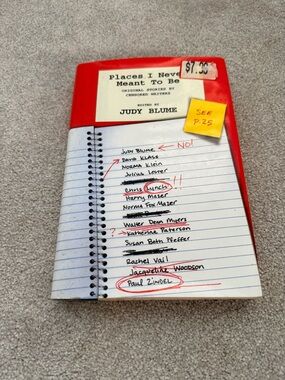 $7.00
Places I Never
Meant To Be
ORIGINAL STORIES BY
CENSORED WRITERS
EDITED BY
JUDY BLUME
SEE
P. 25
Judy Blume ← NO!
David Klass
Norma Klein
Julius Lester
Chris Lynch !!
Harry Mazer
Norma Fox Mazer
Walter Dean Myers
? → Katherine Paterson
Susan Beth Pfeffer
Rachel Vail
Jacqueline Woodson
Paul Zindel